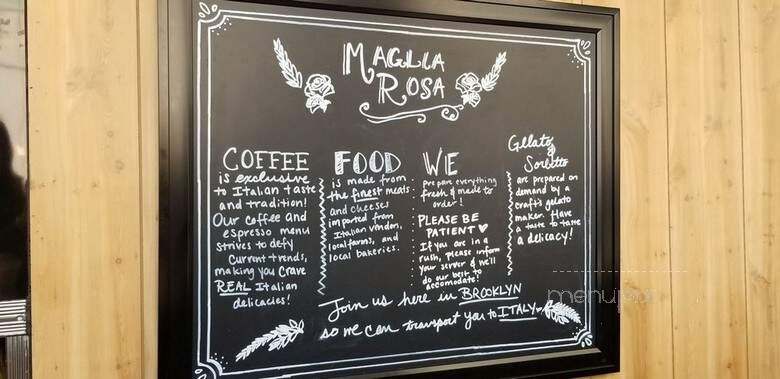 MAGLIA
ROSA
COFFEE
is exclusive
to Italian taste
and tradition!
Our coffee and
espresso menu
strives to defy
current trends,
making you crave
REAL Italian
delicacies!
FOOD
is made from
the finest meats
and cheeses
imported from
Italian vendors,
local farms, and
local bakeries.
WE
prepare everything
fresh & made to
order!
PLEASE BE
PATIENT ♥
If you are in a
rush, please inform
your server & we'll
do our best to
accomodate!
Gelato &
Sorbetto
are prepared on
demand by a
craft gelato
maker. Have
a taste to taste
a delicacy!
Join us here in BROOKLYN
so we can transport you to ITALY
menupix